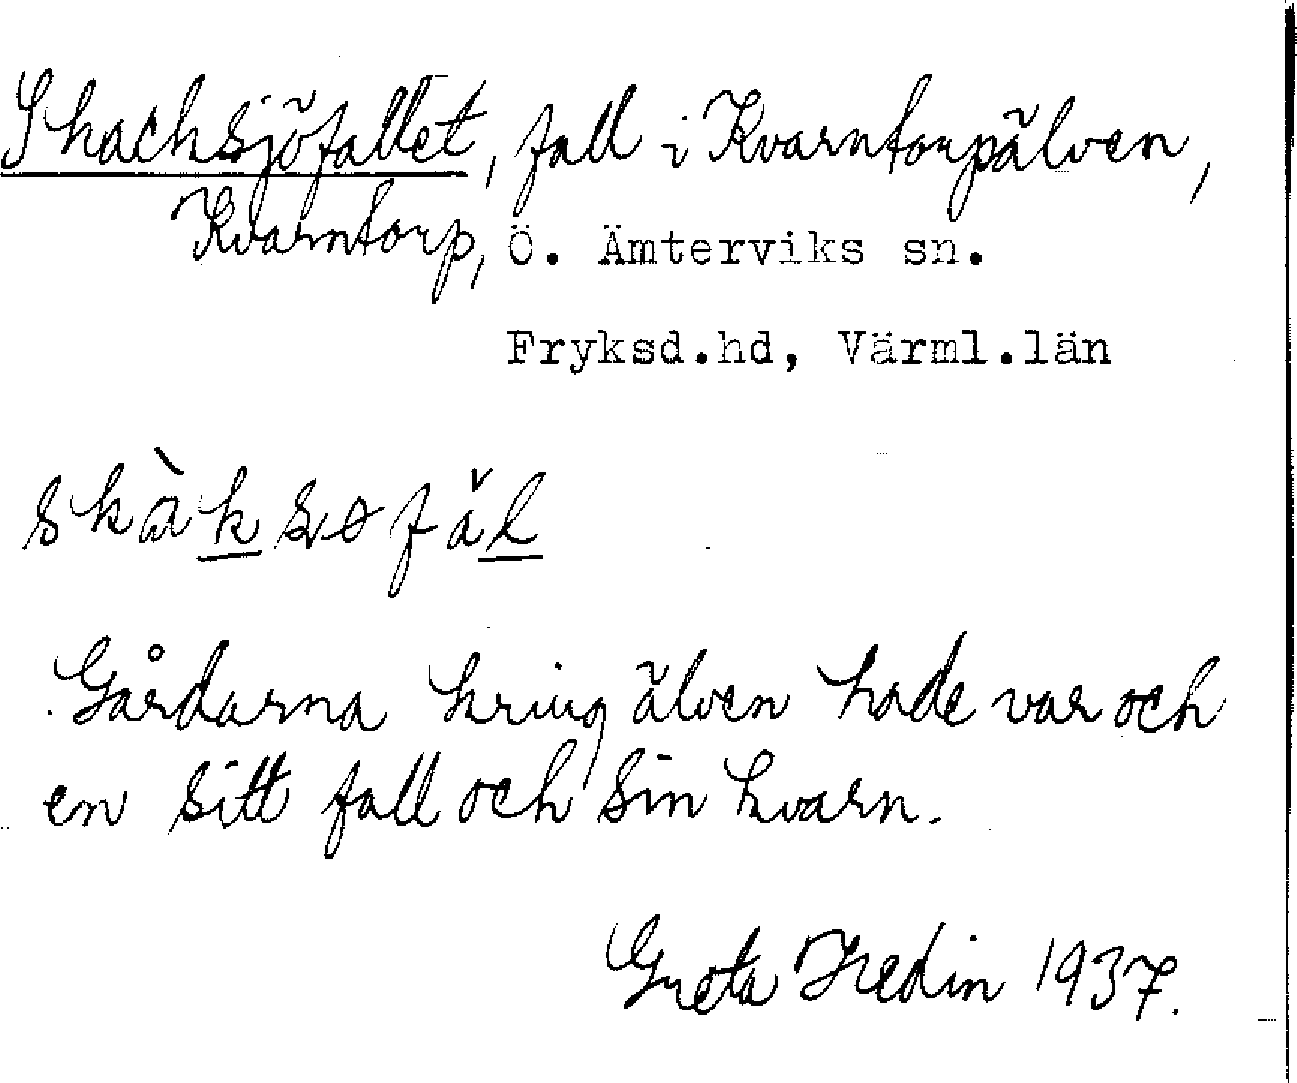 Skacksjöfallet, fall i Kvarntorpälven,
Kvarntorp, Ö. Ämterviks sn.
Fryksd.hd, Värml.län
Gårdarna kring älven hade var och
en sitt fall och sin kvarn.
Greta Hedin 1937.